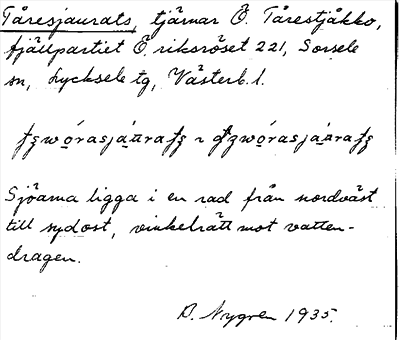 Tåresjaurats, tjärnar Ö. Tårestjåkko,
fjällpartiet Ö. riksröset 221, Sorsele
sn, Lycksele tg, Västerb. l.
Sjöarna ligga i en rad från nordväst
till sydost, vinkelrätt mot vatten-
dragen.
D. Nygren 1935.